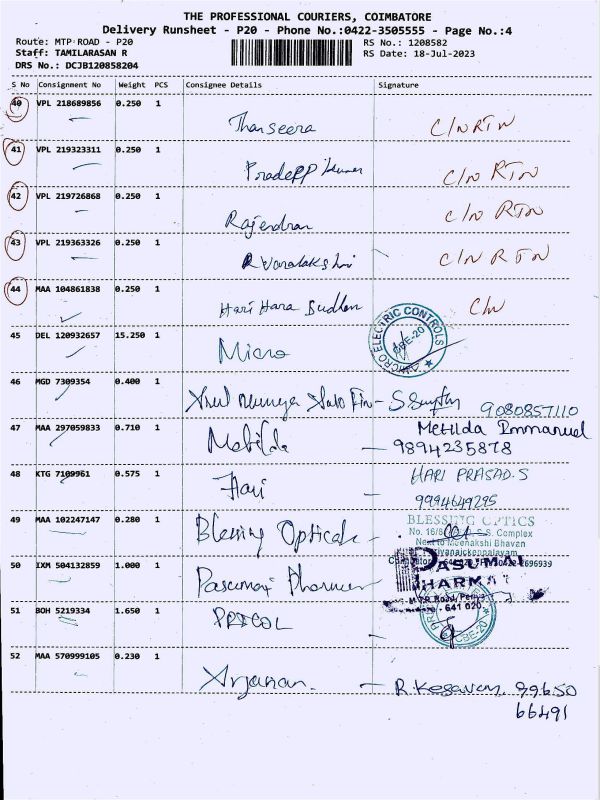 THE PROFESSIONAL COURIERS, COIMBATORE
Delivery Runsheet - P20 - Phone No.:0422-3505555 - Page No.:4
Route: MTP ROAD - P20
RS No.: 1208582
Staff: TAMILARASAN R
RS Date: 18-Jul-2023
DRS No.: DCJB120858204
S No Consignment No Weight PCS Consignee Details Signature
40 VPL 218689856 0.250 1
Thanseera C/N RTN
41 VPL 219323311 0.250 1
Pradeep Kumar C/N RTN
42 VPL 219726868 0.250 1
Rajendran C/N RTN
43 VPL 219363326 0.250 1
R Varalakshi C/N RTN
44 MAA 104861838 0.250 1
Hari Hara Sudhan C/N
45 DEL 120932657 15.250 1
Micro
MICRO ELECTRIC CONTROLS
CBE-20
46 MGD 7309354 0.400 1
9080857110
47 MAA 297059833 0.710 1
Metilda Immanuel
Metilda - 9894235878
48 KTG 7109961 0.575 1
HARI PRASAD.S
Hari - 9994649295
49 MAA 102247147 0.280 1
BLESSING OPTICS
Blessing Opticals -
S.S. Complex
Next to Meenakshi Bhavan
50 IXM 504132859 1.000 1
PASUMAI
PHARMACY
Pasumai
641 020
51 BOH 5219334 1.650 1
PRICOL
CBE-20
52 MAA 570999105 0.230 1
- R. Kesavan. 99650
66491